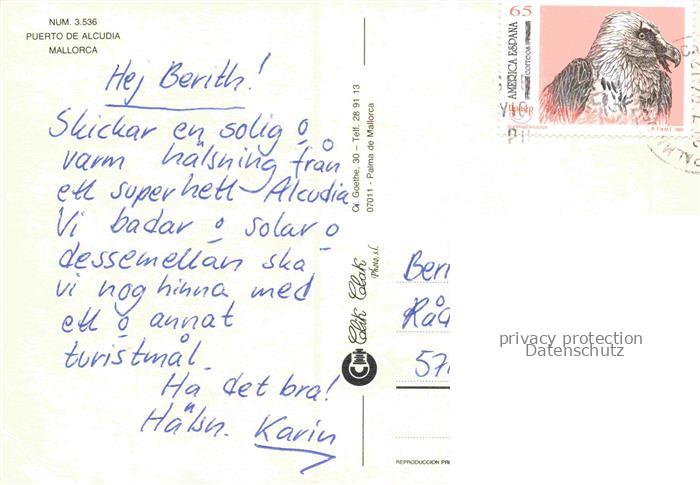 NUM. 3.536
PUERTO DE ALCUDIA
MALLORCA
Hej Berith!
Skickar en solig o
varm hälsning från
ett superhett Alcudia
Vi badar o solar o
dessemellan ska
vi nog hinna med
ett o annat
turistmål
Ha det bra!
Hälsn. Karin
C/. Goethe, 30 – Telf. 28 91 13
07011 - Palma de Mallorca
Clik Clak
Photo, s.l.
65
AMERICA ESPAÑA
CORREOS
Upaep
F.N.M.T.
PALM
Beri
Råd
57
privacy protection
Datenschutz
REPRODUCCION PR